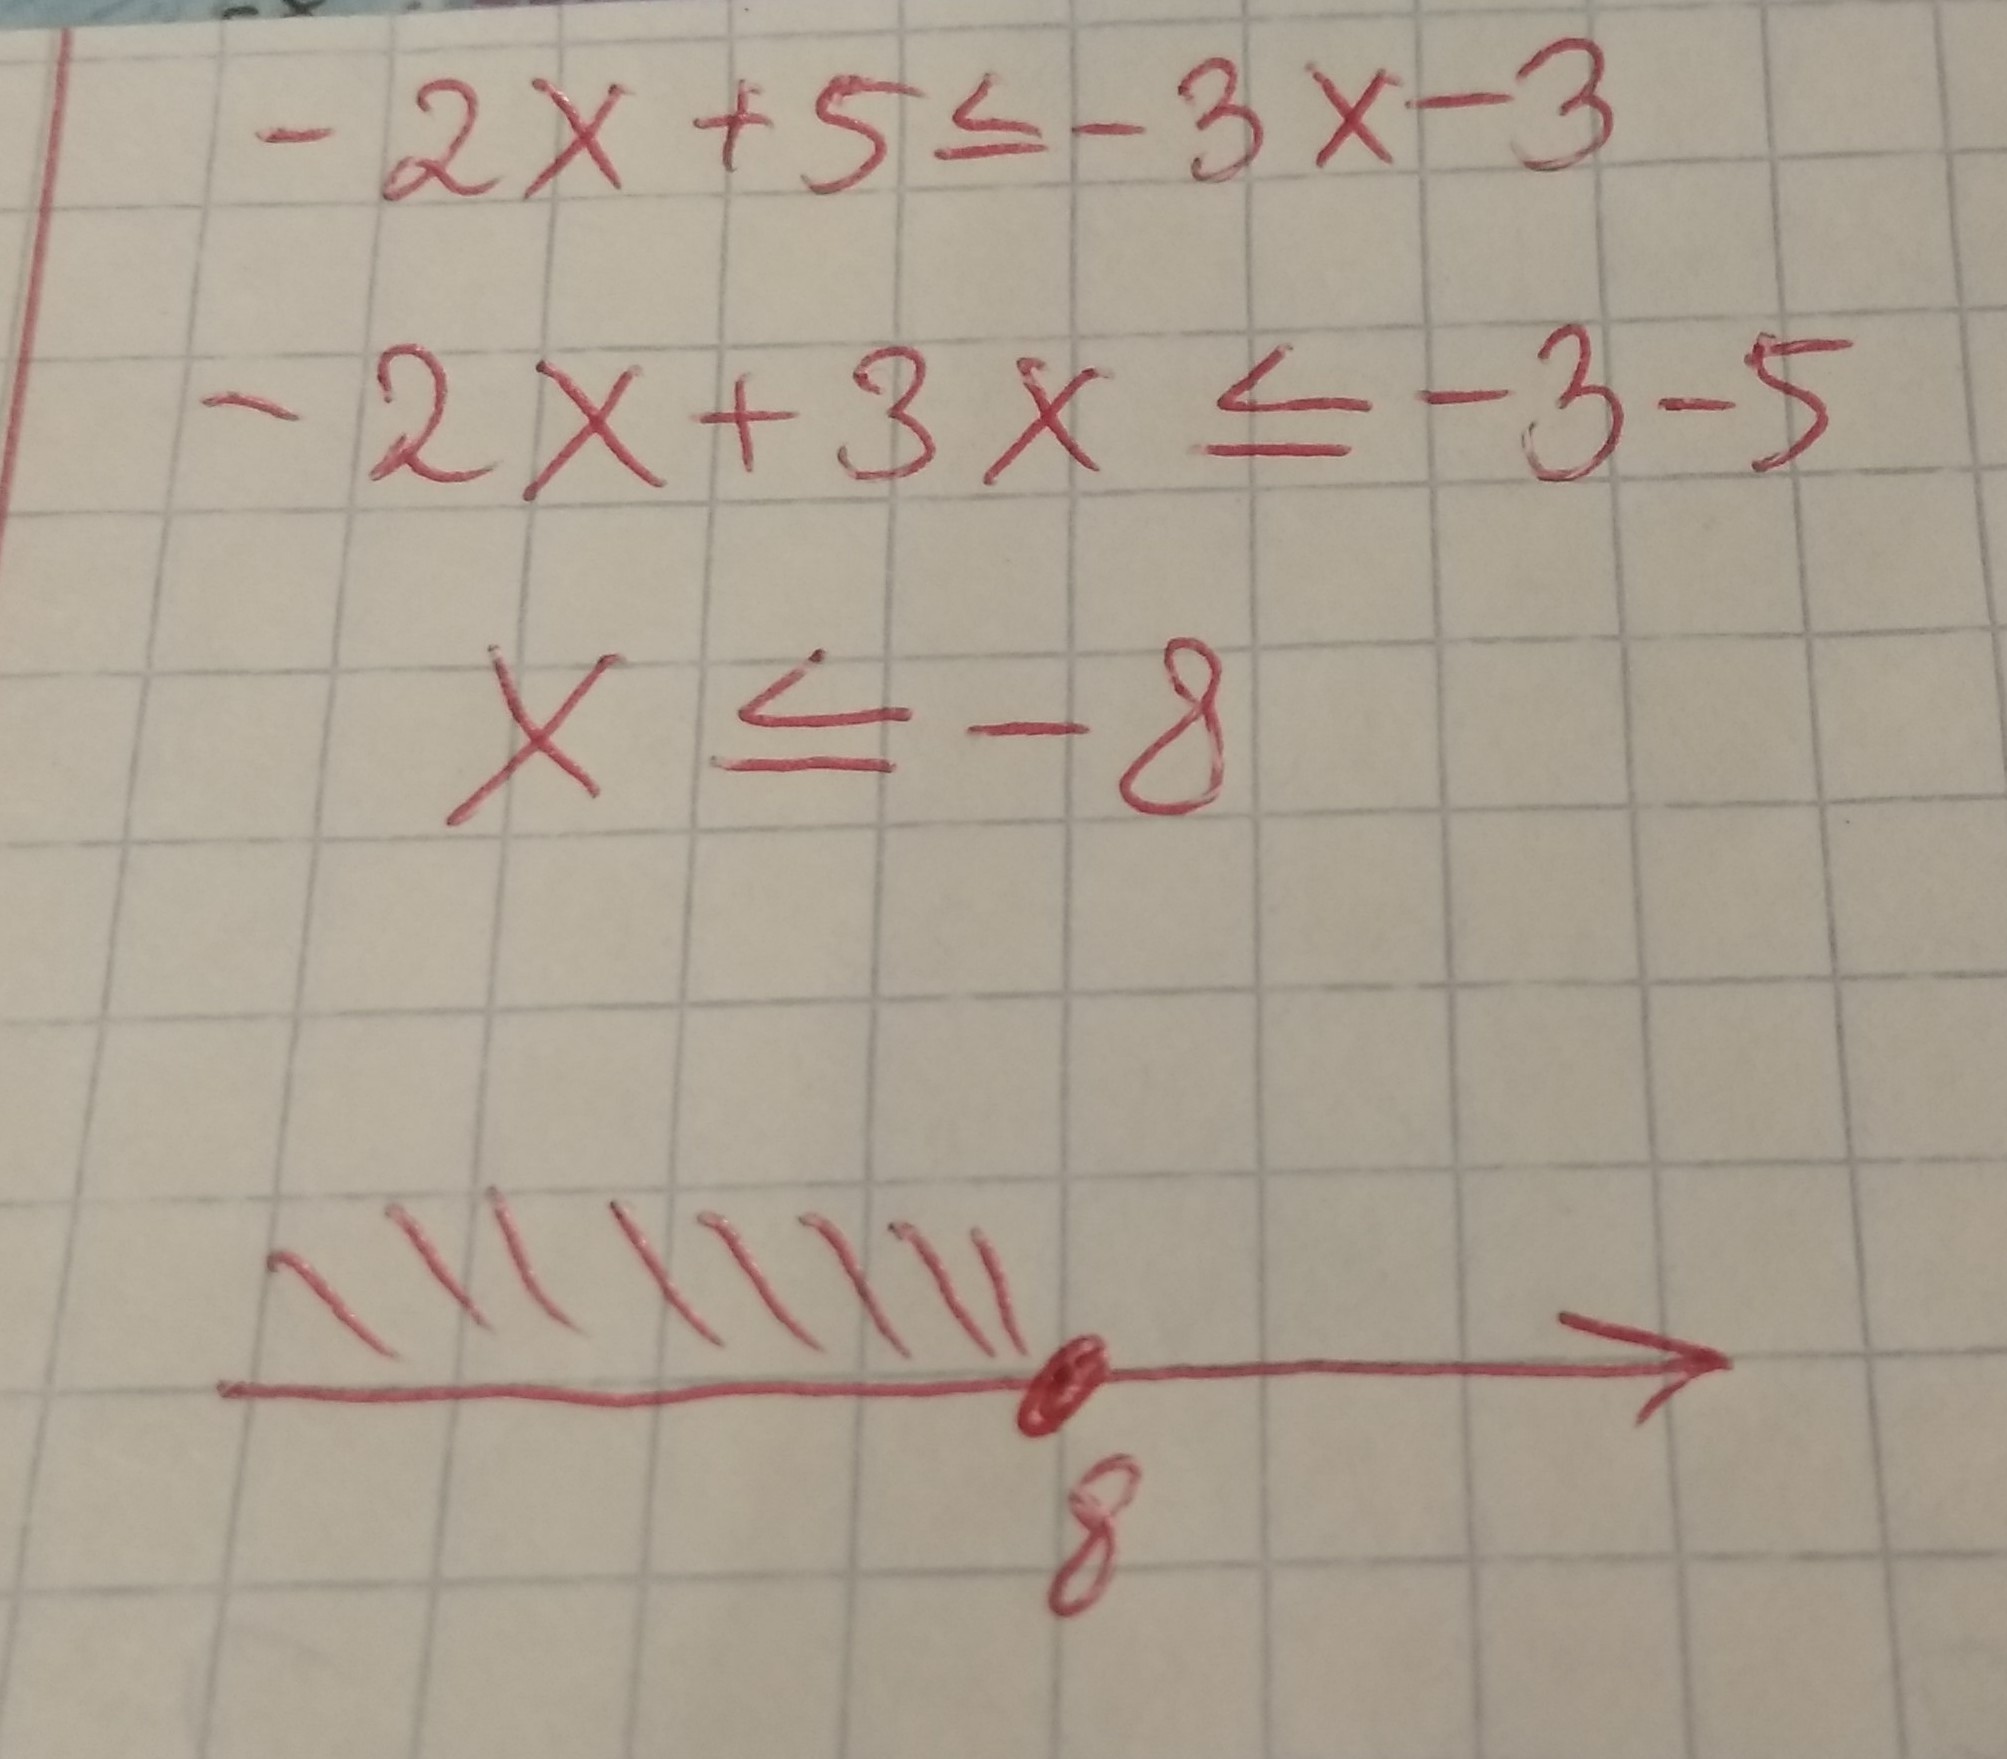 -2x+5≤-3x-3
-2x+3x≤-3-5
x≤-8
8